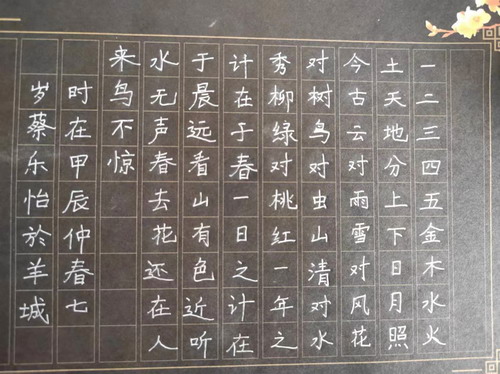 一二三四五金木水火
土天地分上下日月照
今古云对雨雪对风花
对树鸟对虫山清对水
秀柳绿对桃红一年之
计在于春一日之计在
于晨远看山有色近听
水无声春去花还在人
来鸟不惊
时在甲辰仲春七
岁蔡乐怡於羊城